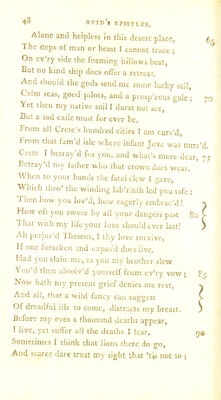 48 OVID'S EPISTLES.
Alone and helpless in this desert place, 65
The steps of man or beast I cannot trace;
On ev'ry side the foaming billows beat,
But no kind ship does offer a retreat.
And should the gods send me some lucky sail,
Calm seas, good pilots, and a prosp'rous gale: 70
Yet then my native soil I durst not see,
But a sad exile must for ever be.
From all Crete's hundred cities I am curs'd,
From that fam'd isle where infant Jove was nurs'd.
Crete I betray'd for you, and what's more dear, 75
Betray'd my father who that crown does wear.
When to your hands the fatal clew I gave,
Which thro' the winding lab'rinth led you safe:
Then how you lov'd, how eagerly embrac'd!
How oft you swore by all your dangers past 80
That with my life your love should ever last!
Ah perjur'd Theseus, I thy love survive,
If one forsaken and expos'd does live.
Had you slain me, as you my brother slew
You'd then absolv'd yourself from ev'ry vow; 85
Now both my present grief denies me rest,
And all, that a wild fancy can suggest
Of dreadful ills to come, distracts my breast.
Before my eyes a thousand deaths appear,
I live, yet suffer all the deaths I fear. 90
Sometimes I think that lions there do go,
And scarce dare trust my sight that 'tis not so;